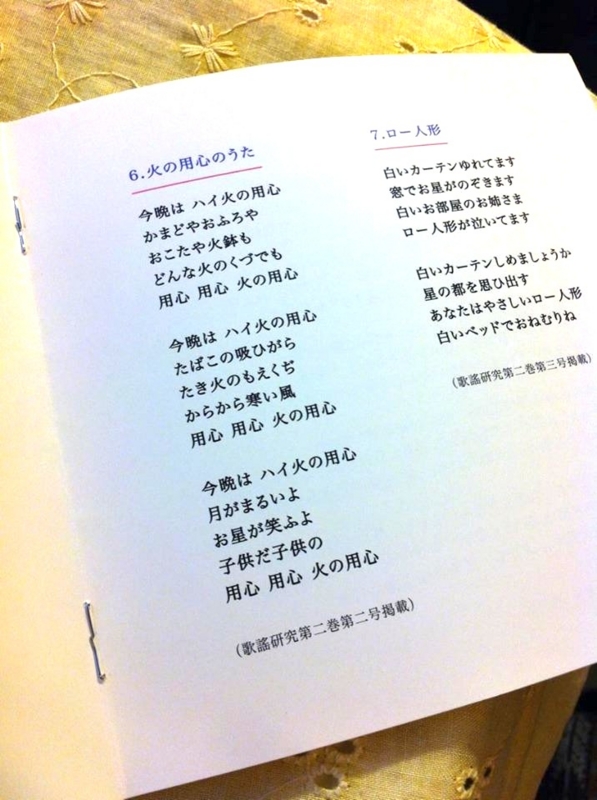 6.火の用心のうた
今晩は ハイ火の用心
かまどやおふろや
おこたや火鉢も
どんな火のくづでも
用心 用心 火の用心
今晩は ハイ火の用心
たばこの吸ひがら
たき火のもえくぢ
からから寒い風
用心 用心 火の用心
今晩は ハイ火の用心
月がまるいよ
お星が笑ふよ
子供だ子供の
用心 用心 火の用心
(歌謡研究第二巻第二号掲載)
7.ロー人形
白いカーテンゆれてます
窓でお星がのぞきます
白いお部屋のお姉さま
ロー人形が泣いてます
白いカーテンしめましょうか
星の都を思ひ出す
あなたはやさしいロー人形
白いベッドでおねむりね
(歌謡研究第二巻第三号掲載)